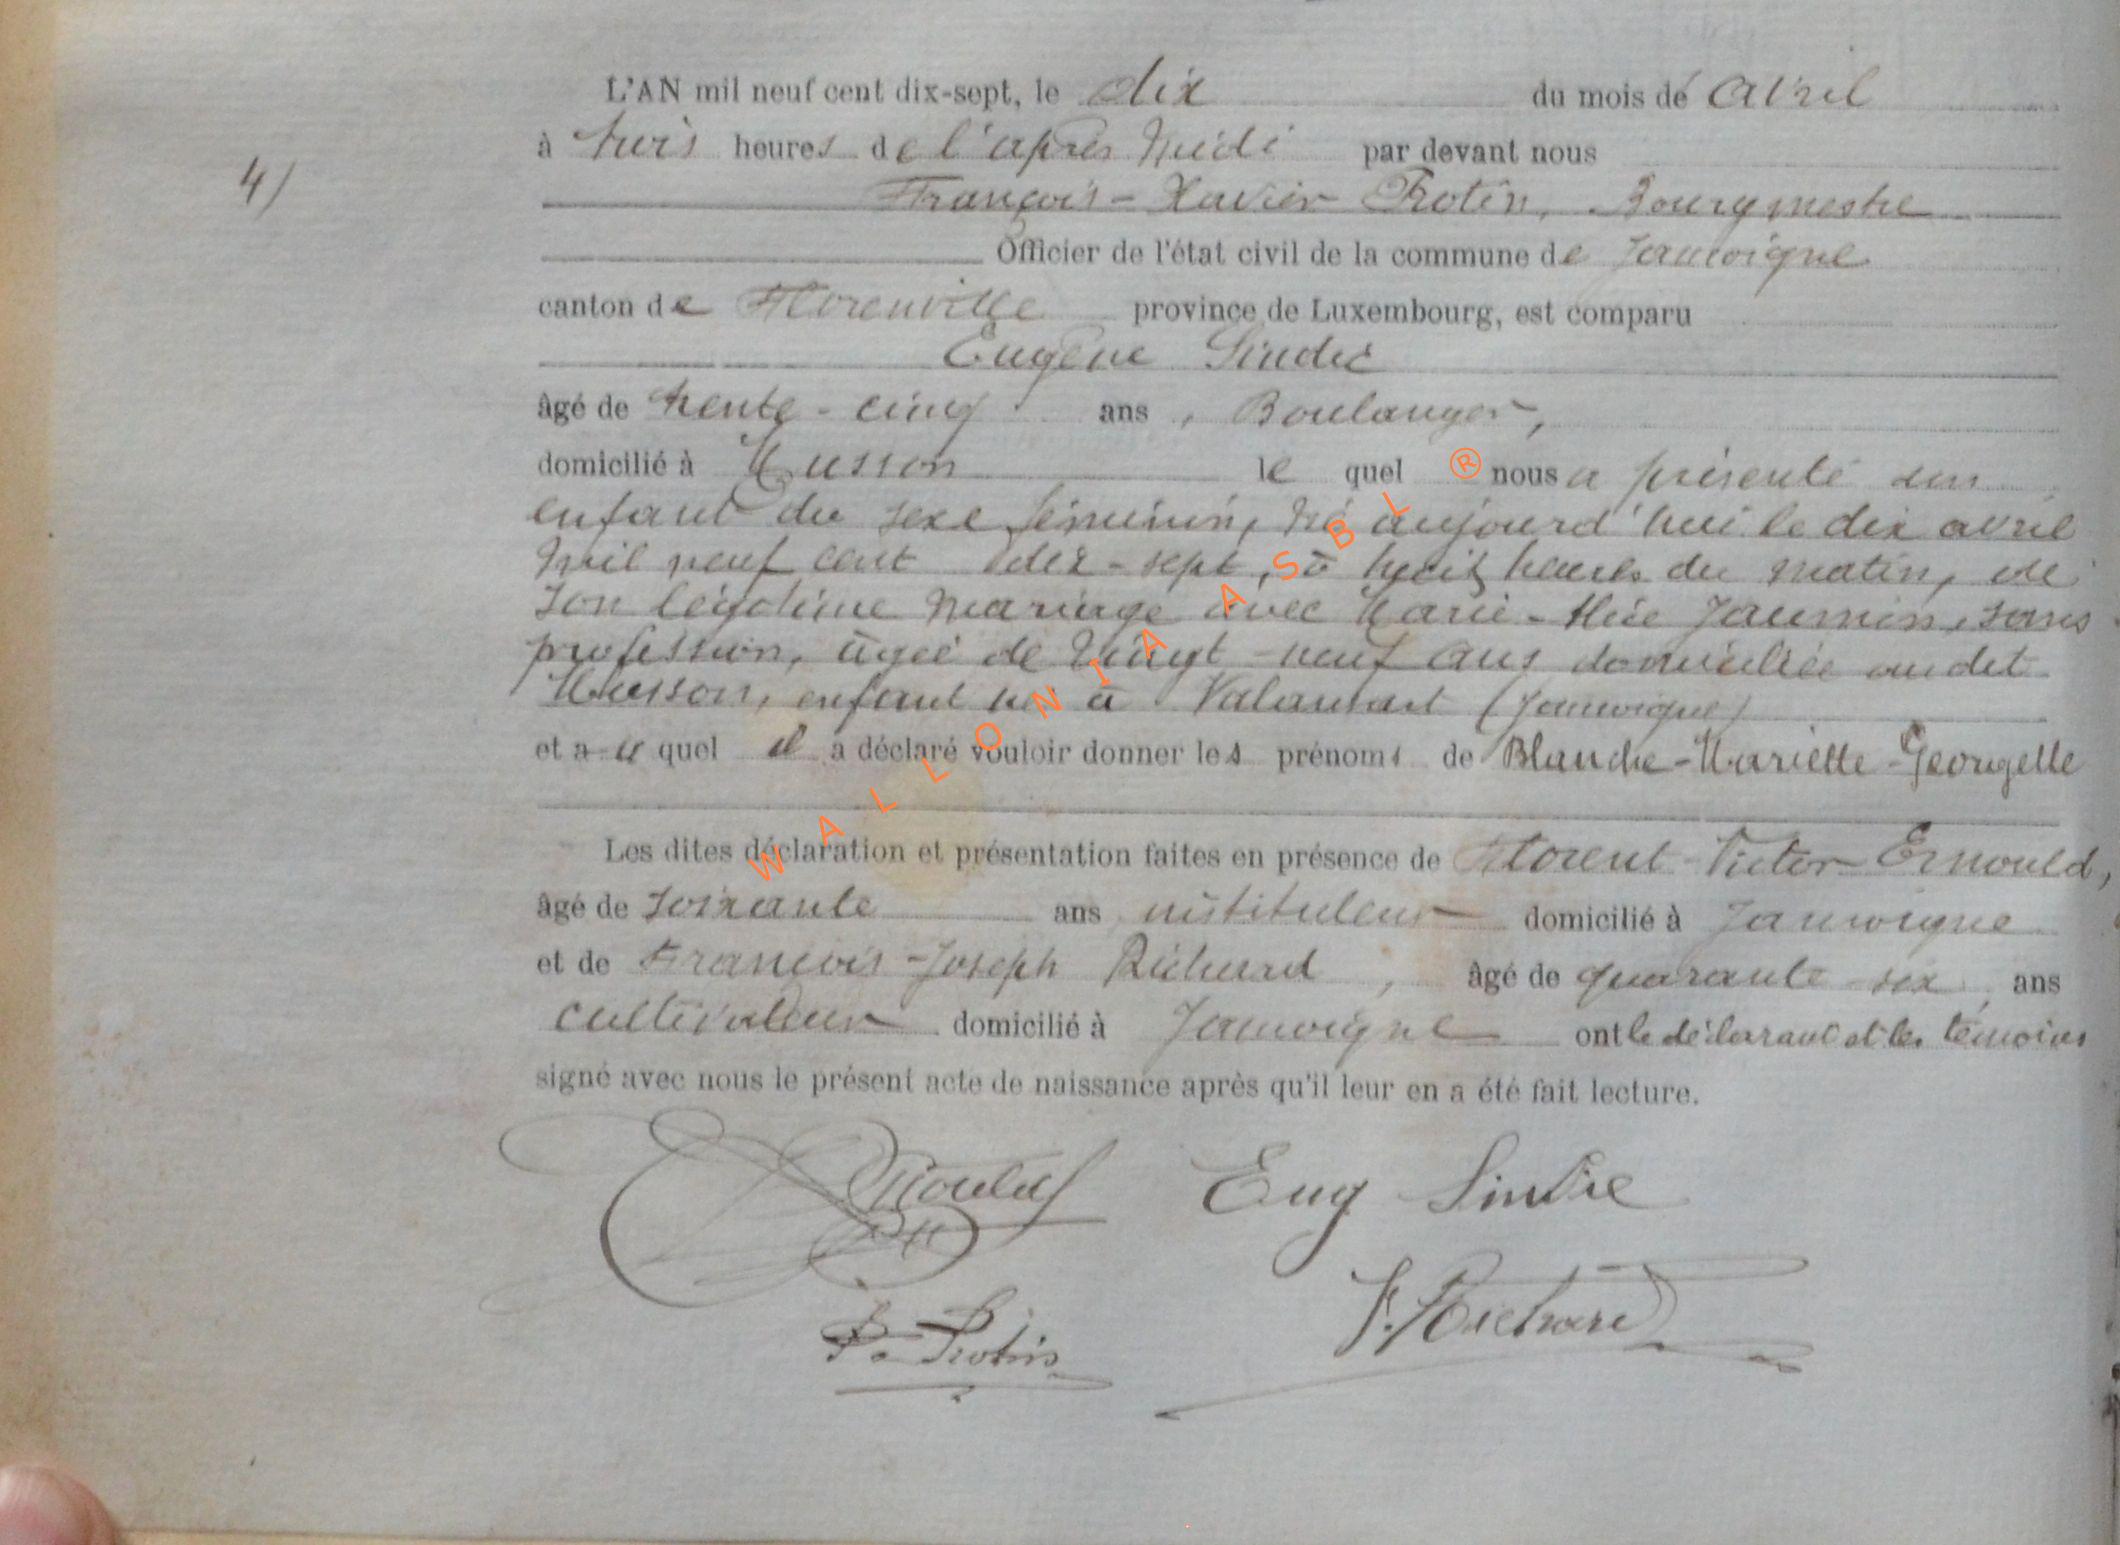 L'AN mil neuf cent dix-sept, le dix du mois de Avril
à trois heures de l'après midi par devant nous
4)
François-Xavier Protin, Bourgmestre
Officier de l'état civil de la commune de Jamoigne
canton de Florenville province de Luxembourg, est comparu
Eugène Sindic
âgé de trente-cinq ans, Boulanger,
domicilié à Musson le quel nous a présenté un
enfant du sexe féminin, né aujourd'hui le dix avril
mil neuf cent dix-sept, à huit heures du matin, de
son légitime mariage avec Marie-Alice Jaumin, sans
profession, âgée de vingt-neuf ans domiciliée au dit
Musson, enfant né à Valansart (Jamoigne)
et au quel il a déclaré vouloir donner les prénoms de Blanche-Mariette-Georgette
Les dites déclaration et présentation faites en présence de Florent-Victor Ernould,
âgé de soixante ans instituteur domicilié à Jamoigne
et de François-Joseph Richard, âgé de quarante-six, ans
cultivateur domicilié à Jamoigne ont le déclarant et les témoins
signé avec nous le présent acte de naissance après qu'il leur en a été fait lecture.
Ernould Eug Sindic
F. Protin F. Richard
WALLONIA ASBL ®